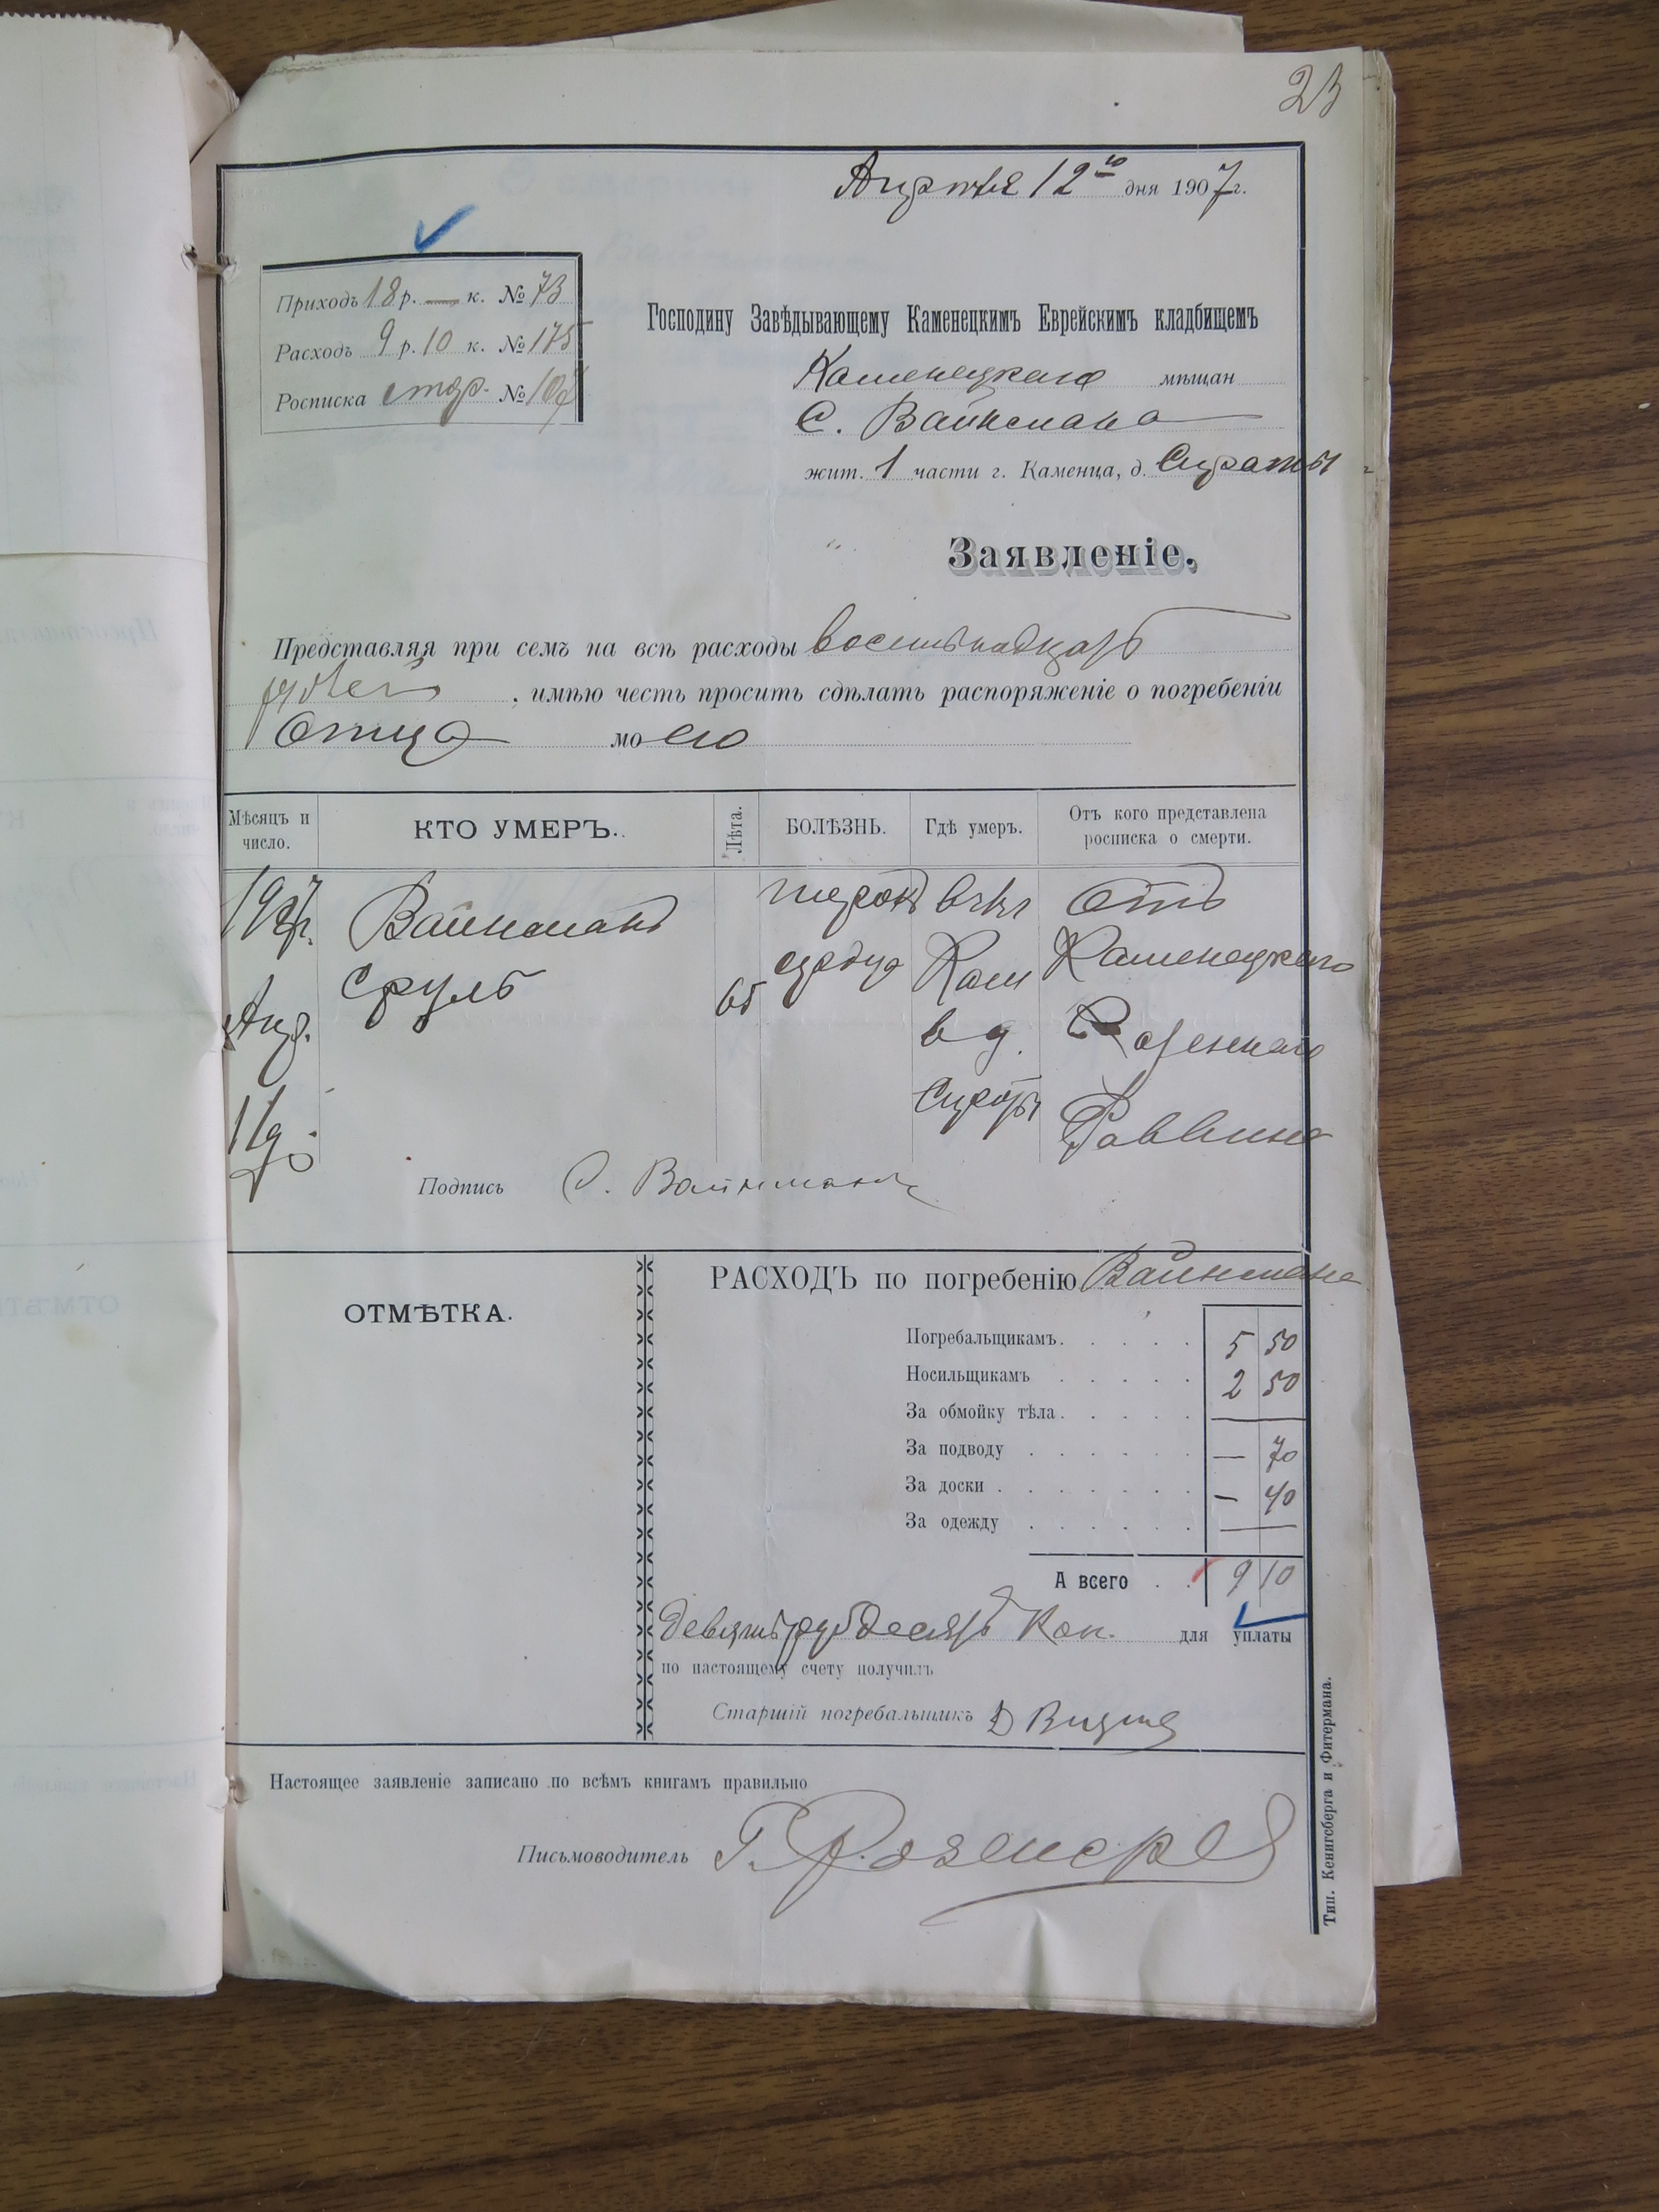 23
Апрѣля 12го дня 1907 г.
Приходъ 18 р. — к. № 73
Расходъ 9 р. 10 к. № 175
Росписка стар. №
Господину Завѣдывающему Каменецкимъ Еврейскимъ кладбищемъ
Каменецкаго мѣщан
С. Вайнмана
жит. 1 части г. Каменца, д.
Заявленіе.
Представляя при семъ на всѣ расходы восемьнадцать
рублей, имѣю честь просить сдѣлать распоряженіе о погребеніи
Отца моего
Мѣсяцъ и число.
КТО УМЕРЪ.
Лѣта.
БОЛѢЗНЬ.
Гдѣ умеръ.
Отъ кого представлена росписка о смерти.
1907 г.
Апр.
11 д.
Вайнманъ
Сруль
65
порокъ
сердца
в г.
Кам
в д.
Отъ
Каменецкаго
Казеннаго
Раввина
Подпись С. Вайнманъ
ОТМѢТКА.
РАСХОДЪ по погребенію Вайнмана
Погребальщикамъ. 5 50
Носильщикамъ 2 50
За обмойку тѣла. —
За подводу — 70
За доски — 40
За одежду —
А всего 9 10
Девять руб десять Коп. для уплаты
по настоящему счету получилъ
Старшій погребальщикъ Д
Настоящее заявленіе записано по всѣмъ книгамъ правильно
Письмоводитель Г.
Тип. Кенигсберга и Фитермана.